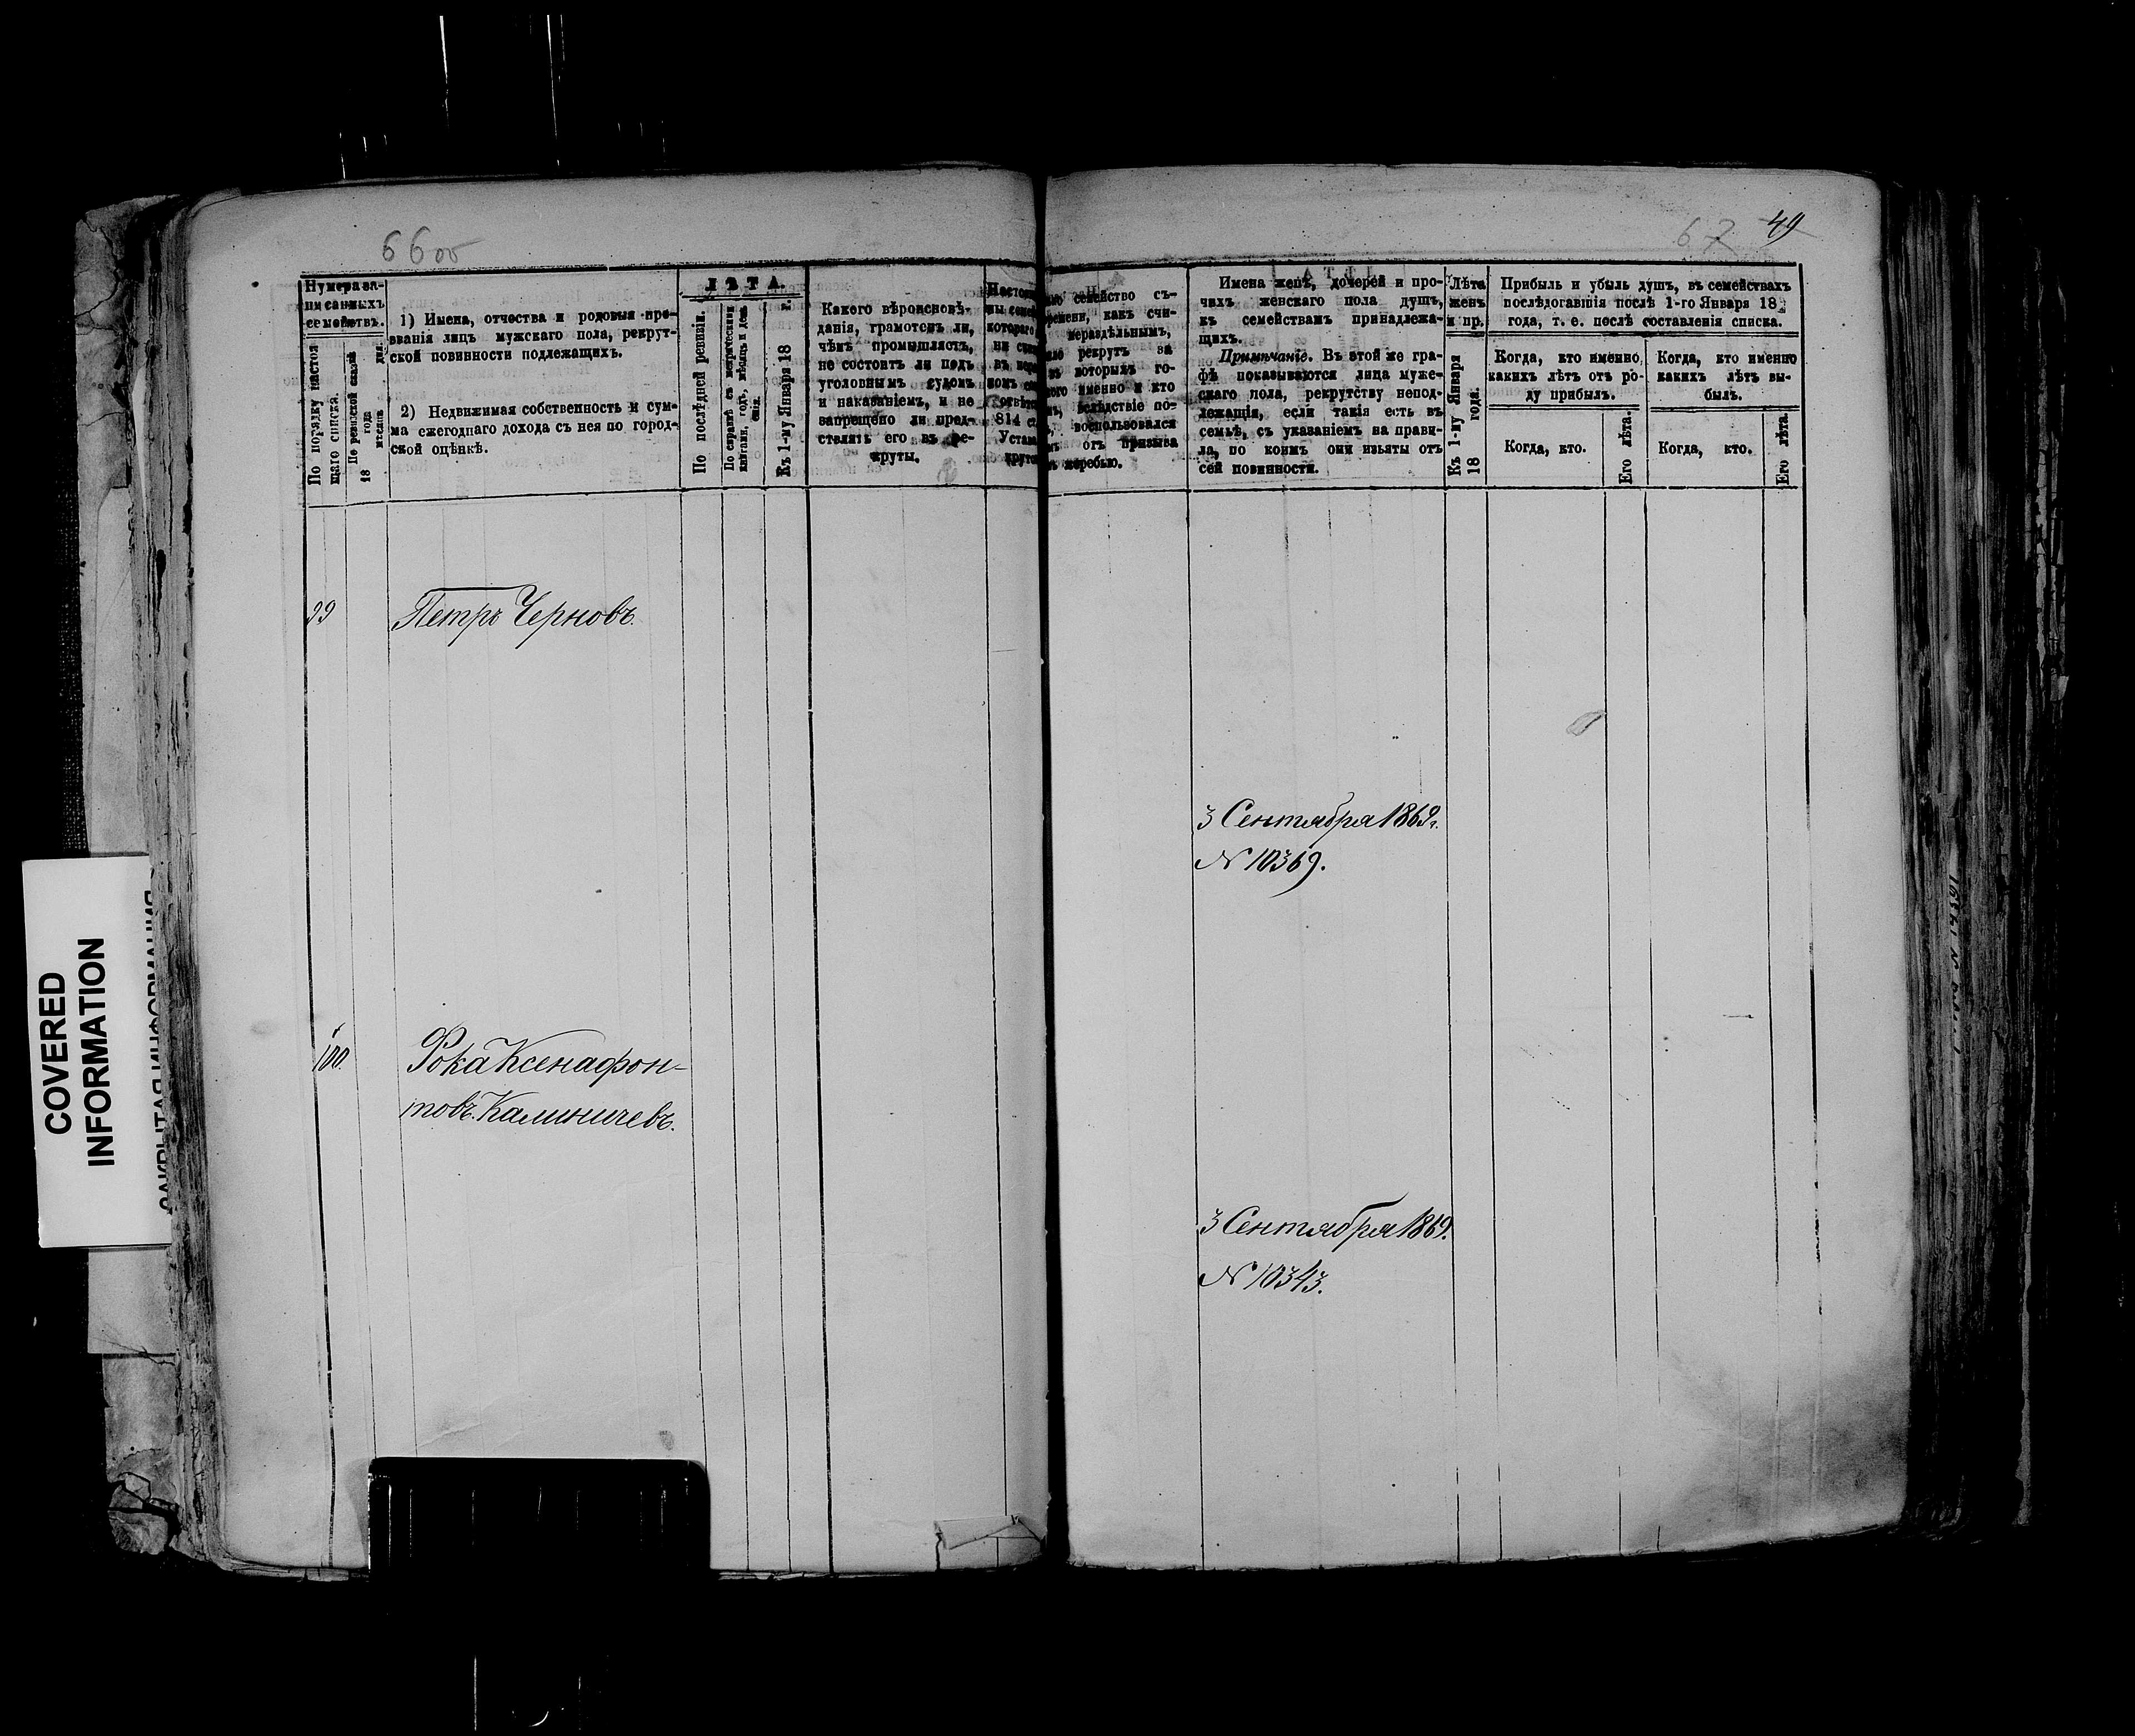 66 об
67 49
Нумера за-
писанныхъ
семействъ.
По порядку настоя
щаго списка.
По ревизской сказкѣ
18 года
мѣсяца дня.
1) Имена, отчества и родовыя про-
званія лицъ мужскаго пола, рекрут-
ской повинности подлежащихъ.
2) Недвижимая собственность и сум-
ма ежегоднаго дохода съ нея по город-
ской оцѣнкѣ.
ЛѢТА.
По послѣдней ревизіи.
По справкѣ съ метрическими
книгами, годъ, мѣсяцъ и день
Къ 1-му Января 18 г.
Какого вѣроисповѣ-
данія, грамотенъ ли,
чѣмъ промышляетъ,
не состоитъ ли подъ
уголовнымъ судомъ
и наказаніемъ, и не
запрещено ли пред-
ставлять его въ ре-
круты.
семейство съ-
времени, какъ счи-
нераздѣльнымъ,
рекрутъ за
которыхъ го-
именно и кто
вслѣдствіе по-
воспользовался
отъ призыва
жеребью.
Имена женъ, дочерей и про-
чихъ женскаго пола душъ,
къ семействамъ принадлежа-
щихъ.
Примѣчаніе. Въ этой же гра-
фѣ показываются лица муже-
скаго пола, рекрутству непод-
лежащія, если такія есть въ
семьѣ, съ указаніемъ на прави-
ла, по коимъ они изъяты отъ
сей повинности.
Лѣта
женъ
и пр.
Къ 1-му Января
18 года.
Прибыль и убыль душъ, въ семействахъ
послѣдовавшія послѣ 1-го Января 18
года, т. е. послѣ составленія списка.
Когда, кто именно,
какихъ лѣтъ отъ ро-
ду прибылъ.
Когда, кто.
Его лѣта.
Когда, кто именно
какихъ лѣтъ вы-
былъ.
Когда, кто.
Его лѣта.
99 Петръ Черновъ.
3 Сентября 1869 г.
№ 10369.
100. Фока Ксенафон-
товъ Калиничевъ.
3 Сентября 1869.
№ 10343.
COVERED
INFORMATION
ЗАКРЫТАЯ ИНФОРМАЦИЯ